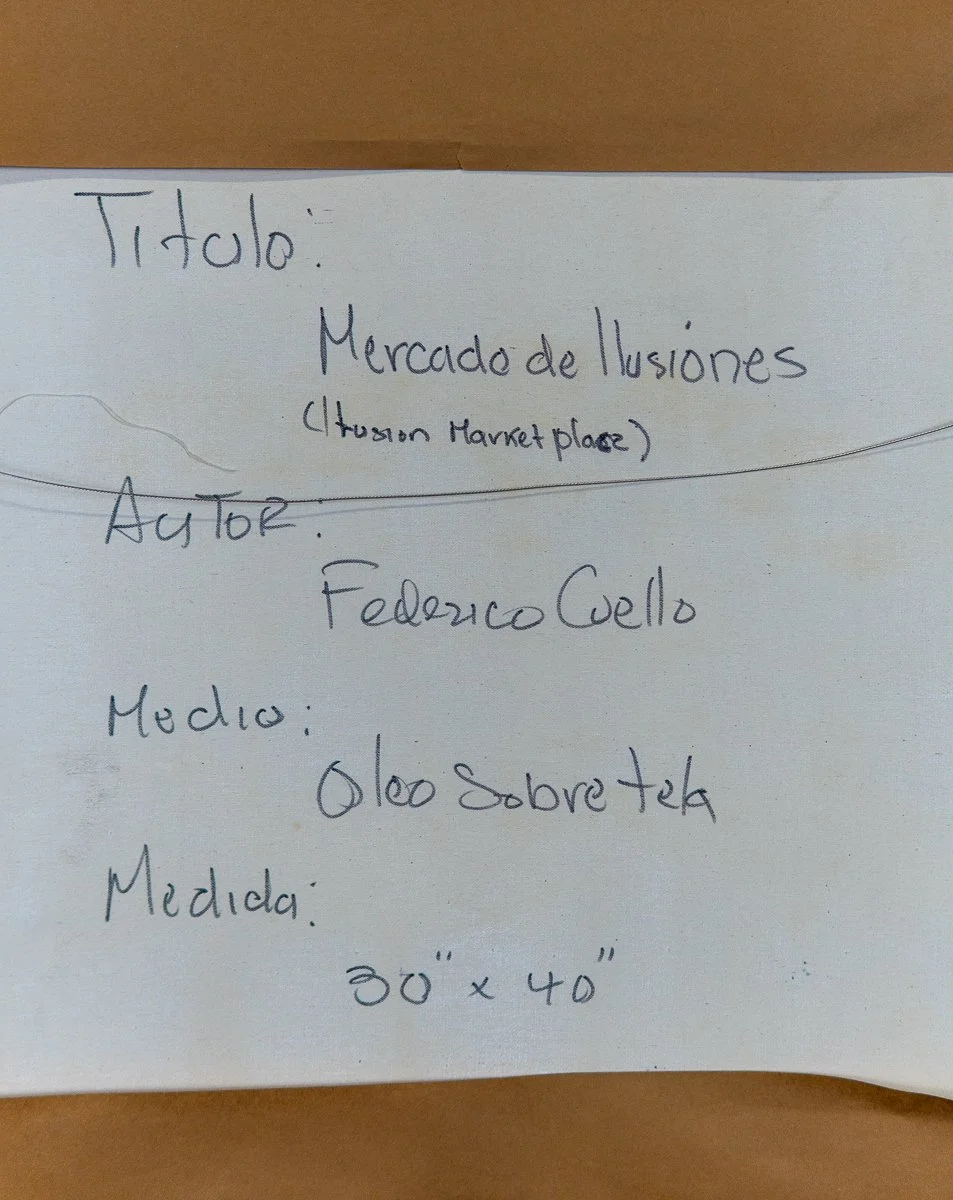 Titulo:
Mercado de Ilusiones
(Ilusion Marketplace)
AUTOR:
Federico Cuello
Medio:
Oleo Sobre tela
Medida:
30" x 40"